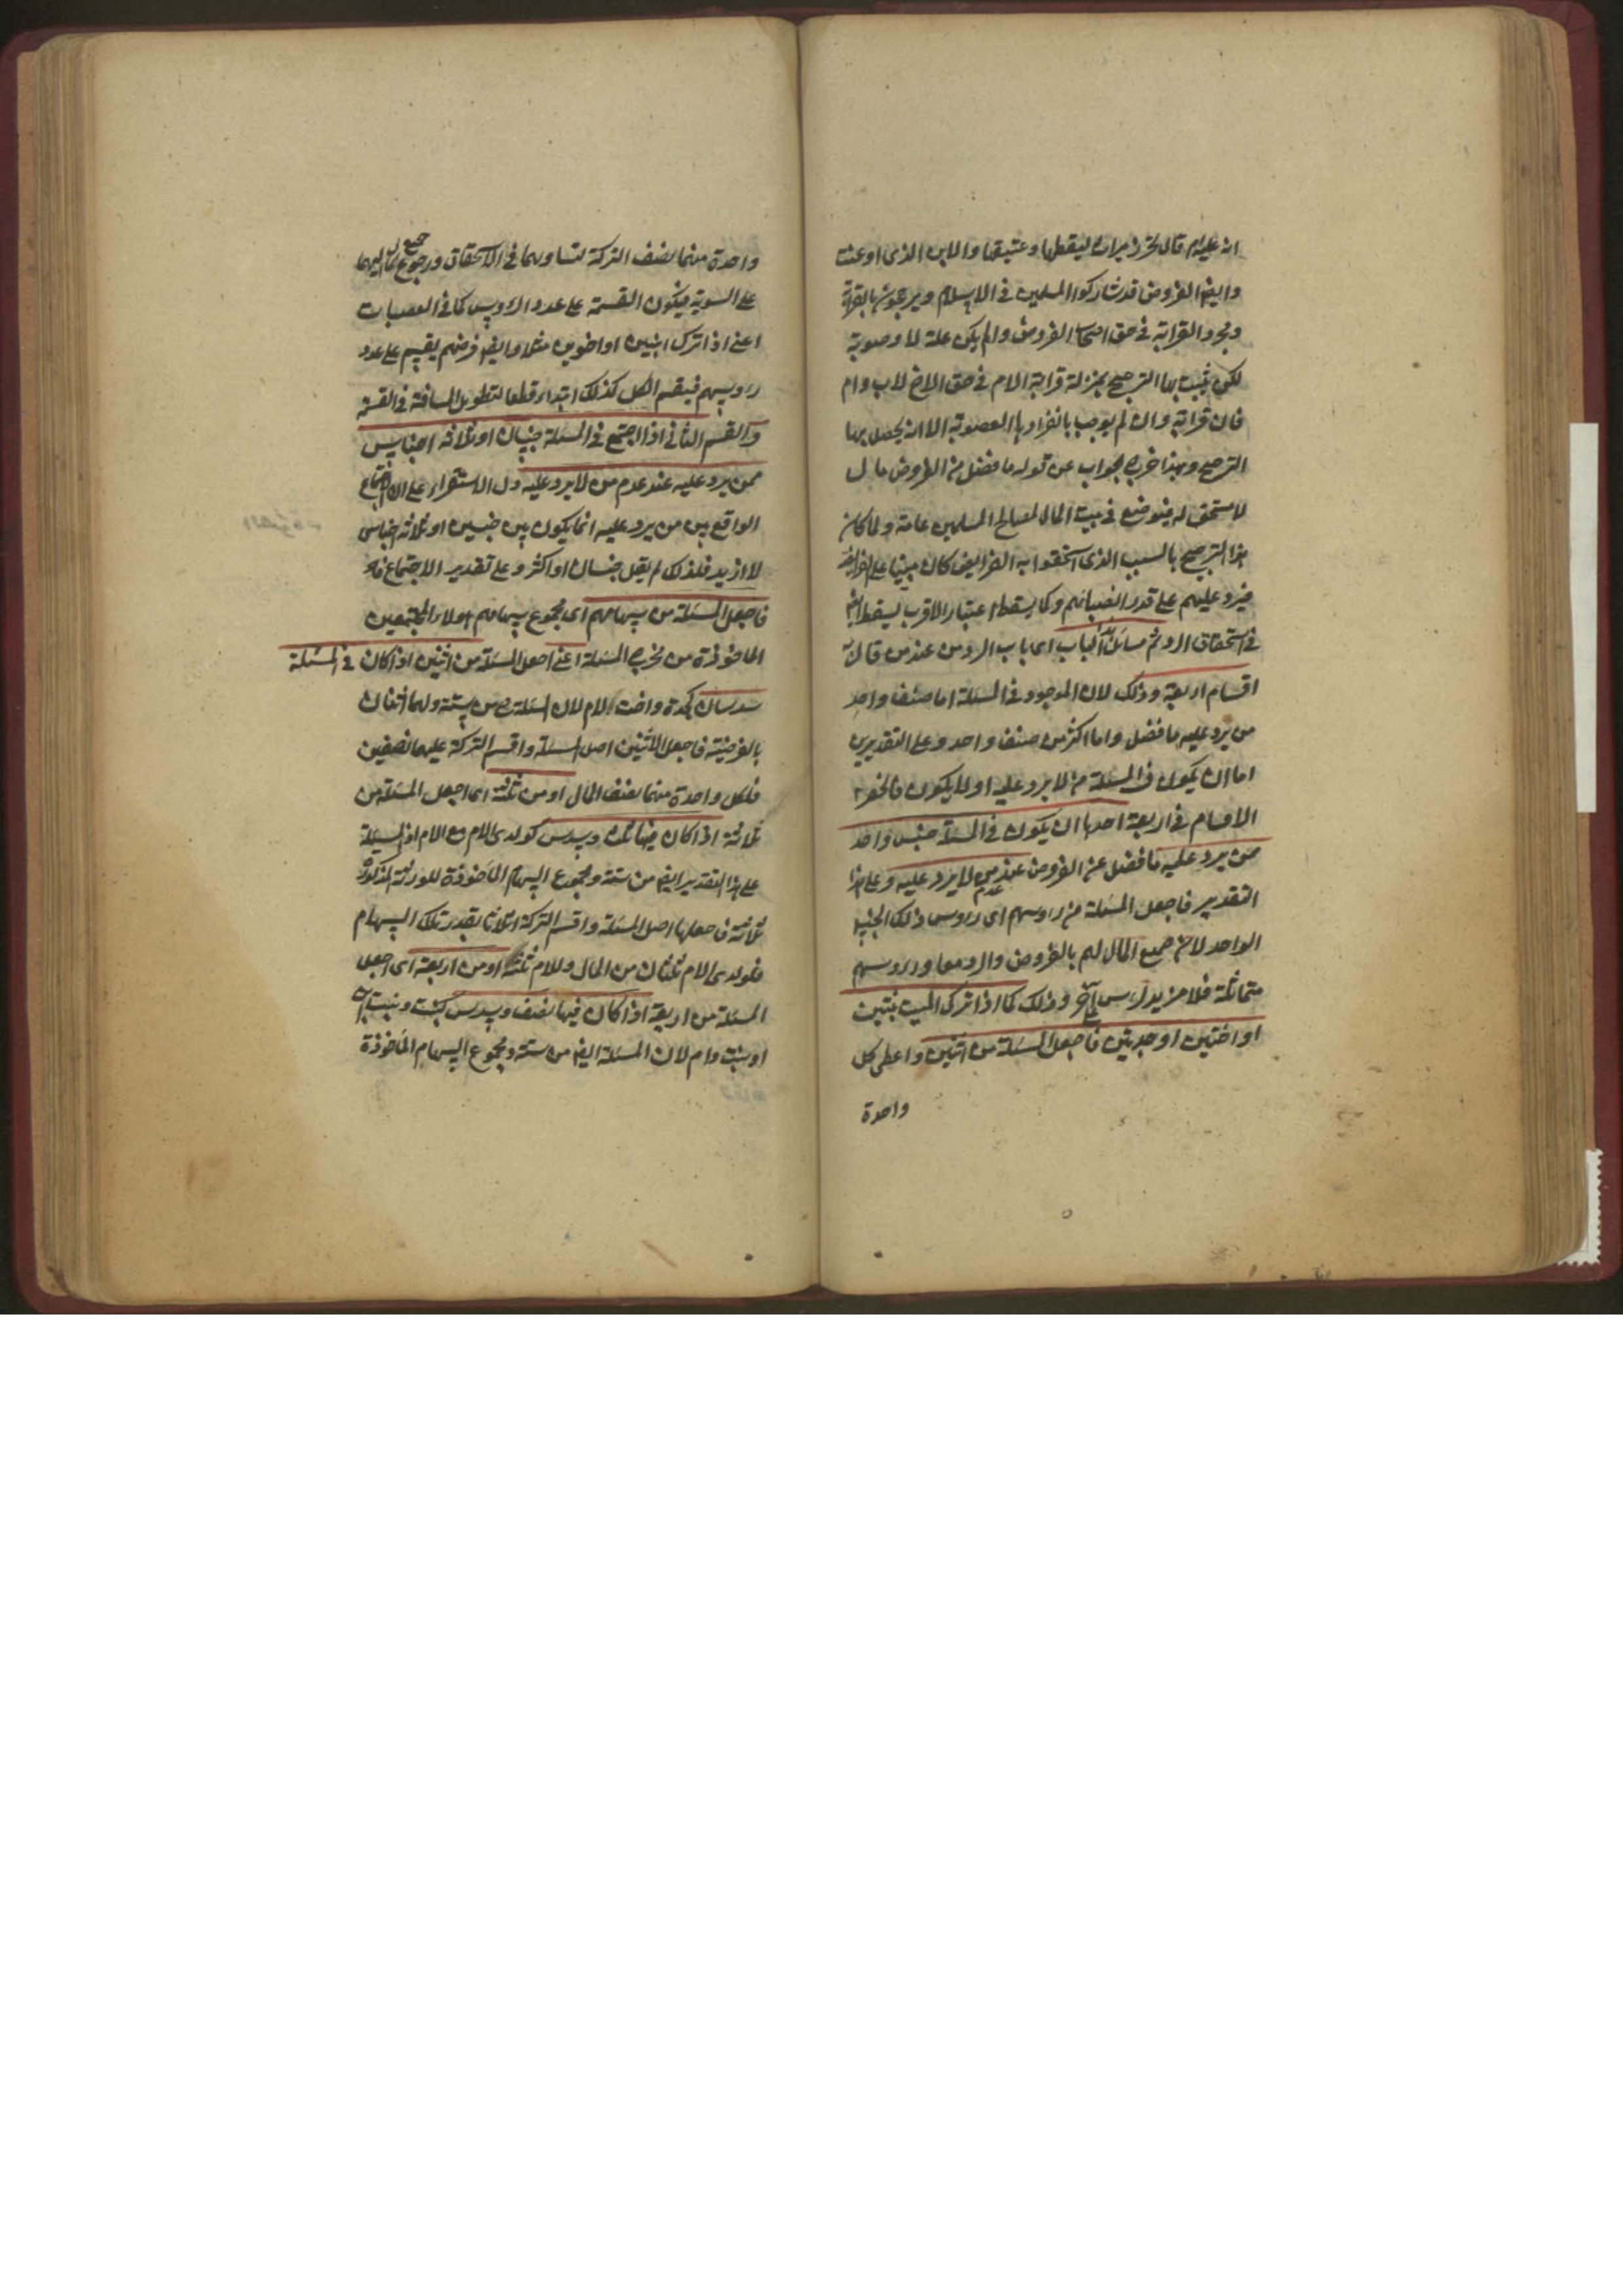 انه عليه السلام قال تحرز ميراث لقيطها وعتيقها والابن الذي لوعنت
وايضا الفروض قد شاركوا المسلمين في الاسلام ويرجحون بالقرابة
ومجرد القرابة في حق اصحاب الفروض وان لم يكن علة للعصوبة
لكن يثبت بها الترجيح بمنزلة قرابة الام في حق الاخ لاب وام
فان قرابة وان لم يوجب بانفرادها العصوبة الا انه يحصل بها
الترجيح وبهذا خرج الجواب عن قوله ما فضل من الفروض مال
لا مستحق له فيوضع في بيت المال لمصالح المسلمين عامة ولما كان
هذا الترجيح بالسبب الذي استحقوا به الفرايض كان مبنيا على الفرايض
فيرد عليهم على قدر انصبائهم وكما يسقط اعتبار الاقرب يسقط ايضا
في استحقاق الرد ثم مسائل الباب اى باب الرد من عند من قال به
اقسام اربعة وذلك لان الموجود في المسئلة اما صنف واحد
من يرد عليه ما فضل واما اكثر من صنف واحد وعلى التقديرين
اما ان يكون في المسئلة من لا يرد عليه او لا يكون فانحصر
الاقسام في اربعة احدها ان يكون في المسئلة جنس واحد
ممن يرد عليه ما فضل عن الفروض عند عدم من لا يرد عليه وعلى هذا
التقدير فاجعل المسئلة من رؤسهم اى رؤس ذلك الجنس
الواحد لان جميع المال لهم بالفروض والرد معا ورؤسهم
متماثلة فلا مزيد لرأس على آخر وذلك كما اذا ترك الميت بنتين
او اختين او جدتين فاجعل المسئلة من اثنين واعطى كل
واحدة
واحدة منهما نصف التركة لتساويهما في الاستحقاق ورجوع جميع المال اليهما
على السوية فيكون القسمة على عدد الرؤس كما في العصبات
اعنى اذا ترك ابنين او اخوين مثلا وايضا فرضهم يقسم على عدد
رؤسهم فيقسم الكل كذلك ابتداء قطعا لتطويل المسافة في القسمة
والقسم الثاني اذا اجتمع في المسئلة جنسان او ثلاثة اجناس
ممن يرد عليه عند عدم من لا يرد عليه دل الاستقراء على ان اجتماع
الواقع بين من يرد عليه انما يكون بين جنسين او ثلاثة اجناس
لا ازيد فلذلك لم يقل جنسان او اكثر وعلى تقدير الاجتماع
فاجعل المسئلة من سهامهم اى مجموع سهام هولاء المجتمعين
الماخوذة من مخرج المسئلة اعنى اجعل المسئلة من اثنين اذا كان في المسئلة
سدسان كجدة واخت لام لان المسئلة ح من ستة ولهما اثنان
بالفريضة فاجعل الاثنين اصل المسئلة واقسم التركة عليهما نصفين
فلكل واحدة منهما نصف المال او من ثلثة اى اجعل المسئلة من
ثلاثة اذا كان فيها ثلث وسدس كولدى الام مع الام اذ المسئلة
على هذا التقدير ايضا من ستة ومجموع السهام الماخوذة للورثة المذكورة
ثلاثة فاجعلها اصل المسئلة واقسم التركة اثلاثا بقدر تلك السهام
فلولدى الام ثلثان من المال وللام ثلثه او من اربعة اى اجعل
المسئلة من اربعة اذا كان فيها نصف وسدس كبنت وبنت ابن
او بنت وام لان المسئلة ايضا من ستة ومجموع السهام الماخوذة